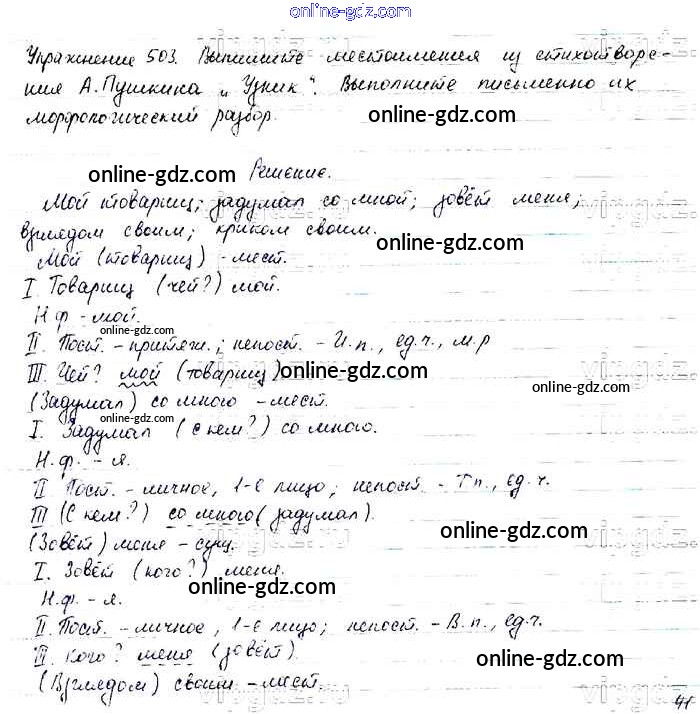 online-gdz.com
Упражнение 503. Выпишите местоимения из стихотворе-
ния А. Пушкина „Узник". Выполните письменно их
online-gdz.com
морфологический разбор.
online-gdz.com
Решение.
Мой товарищ; задумал со мной; зовёт меня;
взглядом своим; криком своим.
online-gdz.com
Мой (товарищ) - мест.
I Товарищ (чей?) мой.
Н.ф - мой.
online-gdz.com
II. Пост. - притяж.; непост. - И.п., ед.ч., м.р
III. Чей? мой (товарищ)
online-gdz.com
online-gdz.com
(Задумал) со мною - мест.
online-gdz.com
I. Задумал (с кем?) со мною.
Н.ф. - я.
II Пост. - личное, 1-е лицо; непост. - Т п., ед.ч.
III (С кем?) со мною (задумал).
online-gdz.com
(Зовёт) меня - сущ.
I. Зовёт (кого?) меня.
online-gdz.com
Н.ф. - я.
II. Пост. - личное, 1-е лицо; непост. - В.п., ед.ч.
III. Кого? меня (зовёт).
online-gdz.com
(Взглядом) своим - мест.
41